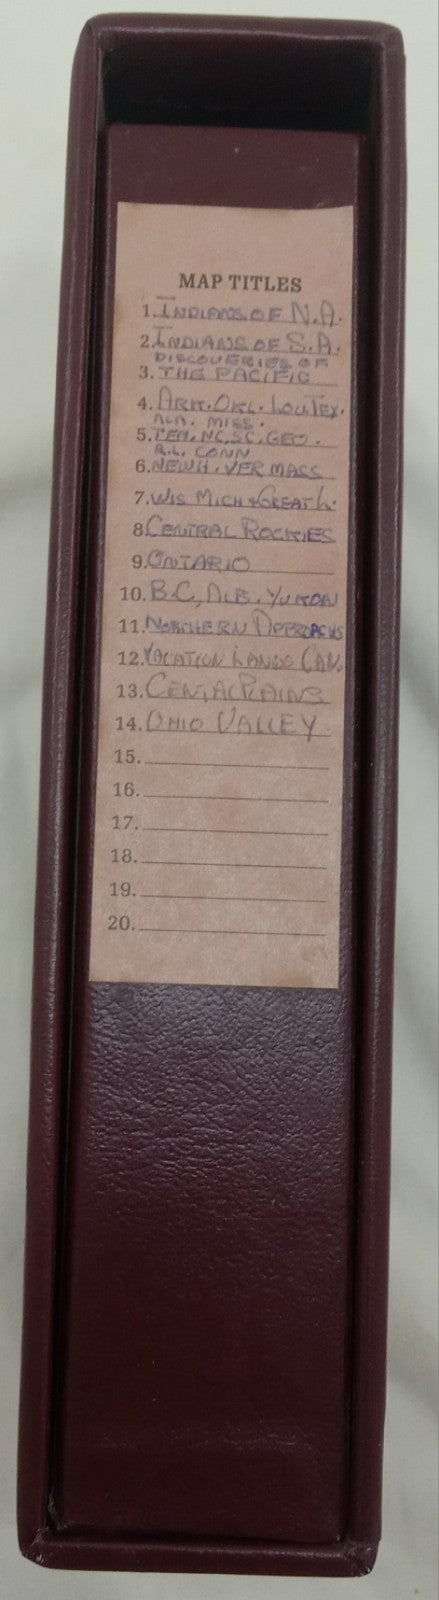 MAP TITLES
1. INDIANS OF N.A.
2. INDIANS OF S.A.
DISCOVERIES OF
3. THE PACIFIC
4. ARK. OKL. LOU TEX.
ALA. MISS.
5. TEN, NC, SC, GEO.
R.I. CONN
6. NEWH. VER MASS
7. WIS MICH & GREAT L.
8. CENTRAL ROCKIES
9. ONTARIO
10. B.C, ALB. YUKON
11. NORTHERN APPROACHS
12. VACATION LANDS CAN.
13. PLAINS
14. OHIO VALLEY
15.
16.
17.
18.
19.
20.